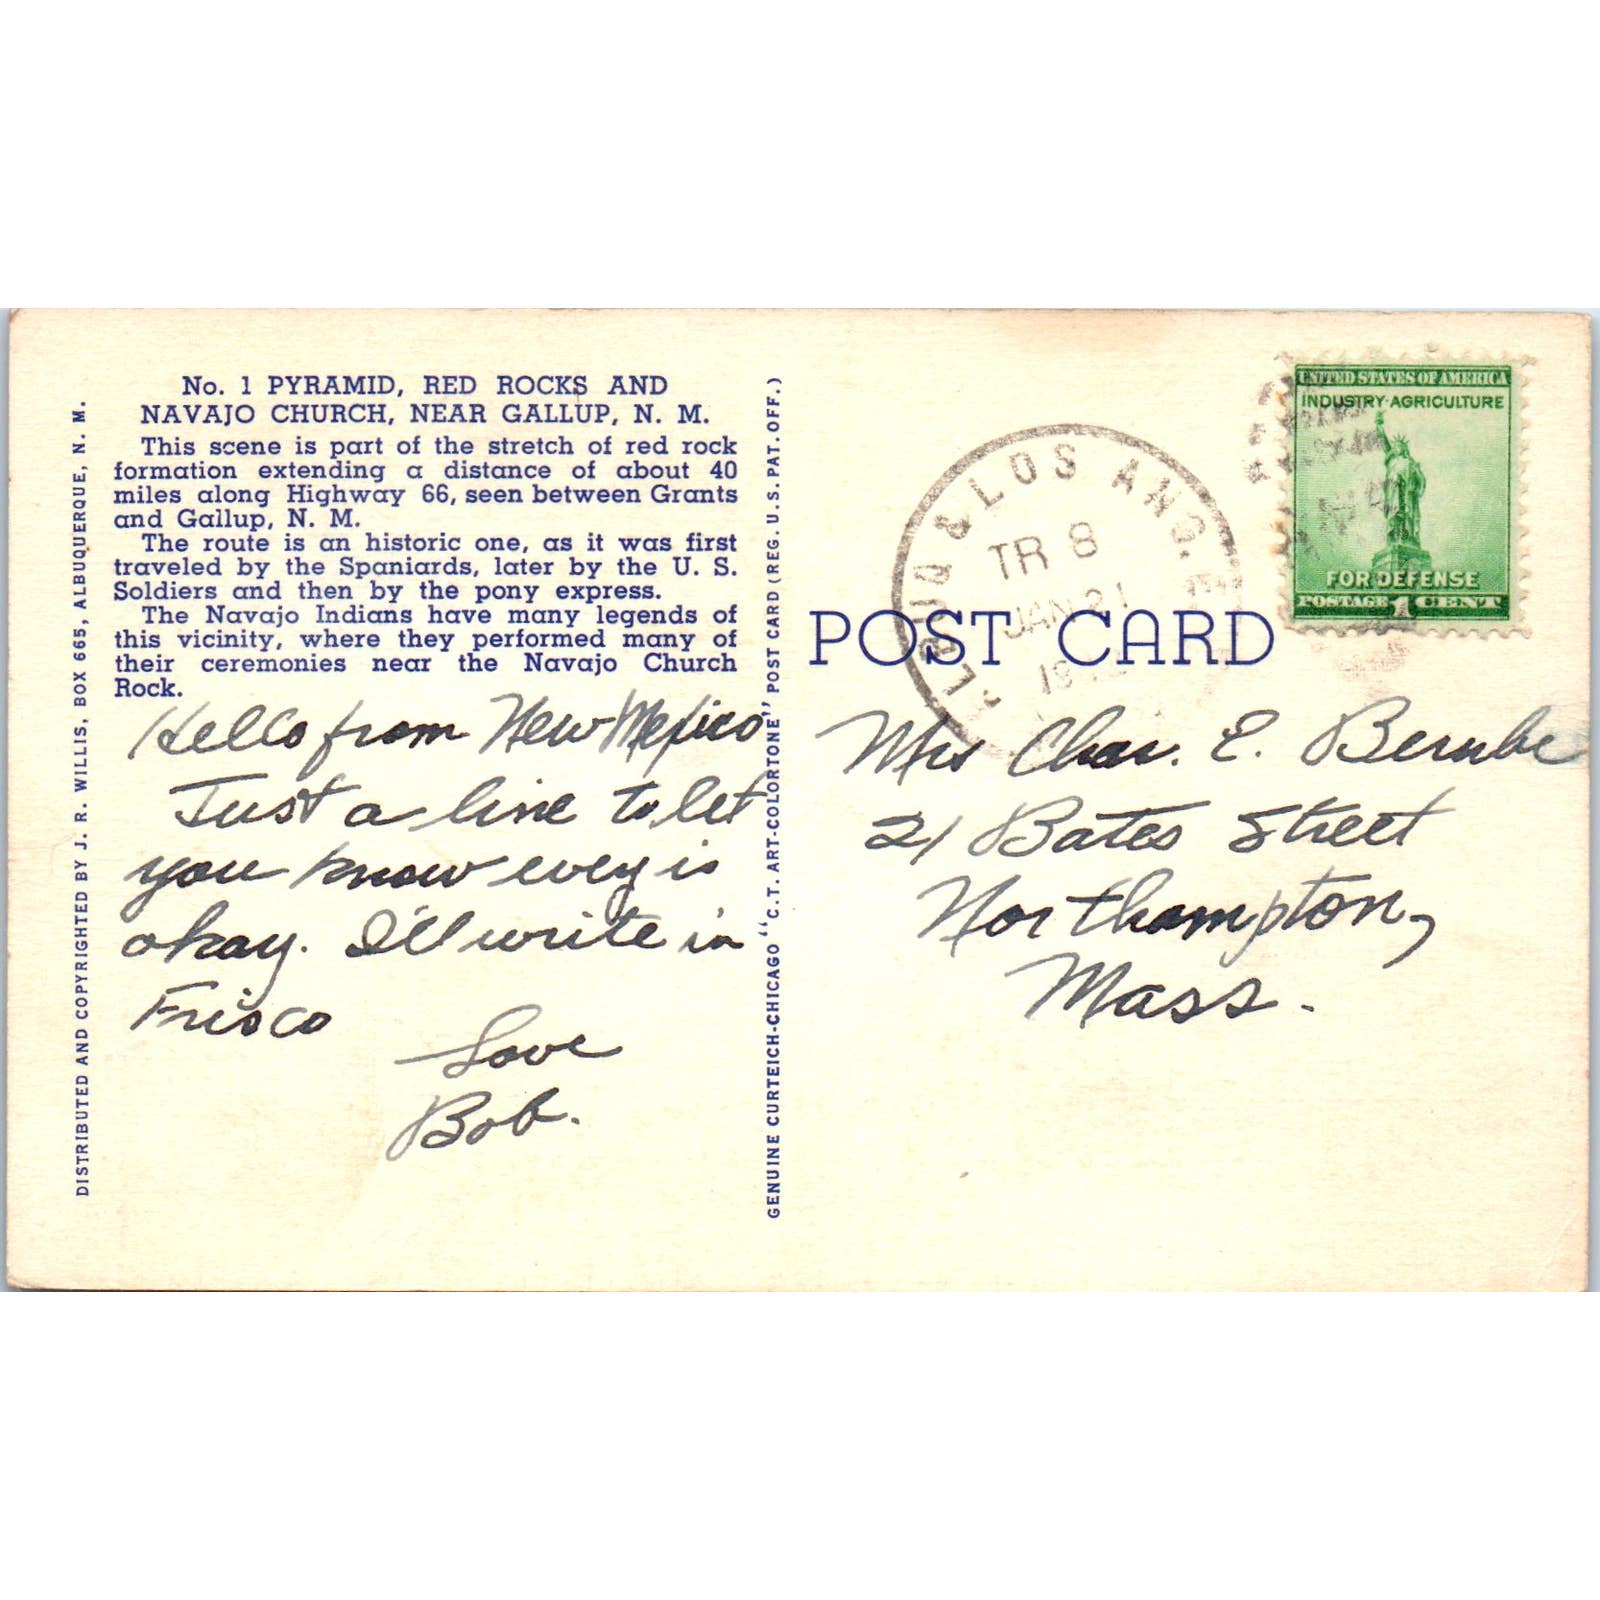 No. 1 PYRAMID, RED ROCKS AND
NAVAJO CHURCH, NEAR GALLUP, N. M.
This scene is part of the stretch of red rock
formation extending a distance of about 40
miles along Highway 66, seen between Grants
and Gallup, N. M.
The route is an historic one, as it was first
traveled by the Spaniards, later by the U. S.
Soldiers and then by the pony express.
The Navajo Indians have many legends of
this vicinity, where they performed many of
their ceremonies near the Navajo Church
Rock.
Hello from New Mexico
Just a line to let
you know evey is
okay. I'll write in
Frisco
Love
Bob.
DISTRIBUTED AND COPYRIGHTED BY J. R. WILLIS, BOX 665, ALBUQUERQUE, N. M.
GENUINE CURTEICH-CHICAGO "C.T. ART-COLORTONE" POST CARD (REG. U.S. PAT. OFF.)
POST CARD
& LOS ANG.
TR 8
JAN 21
UNITED STATES OF AMERICA
INDUSTRY·AGRICULTURE
FOR DEFENSE
POSTAGE 1 CENT
Mrs Chas. E.
21 Bates Street
Northampton,
Mass.